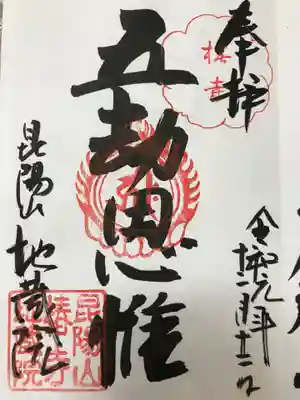 奉拝
椿寺
令和元年
十二月十二日
五劫思惟
昆陽山 地蔵院
昆陽山
椿寺
地蔵院